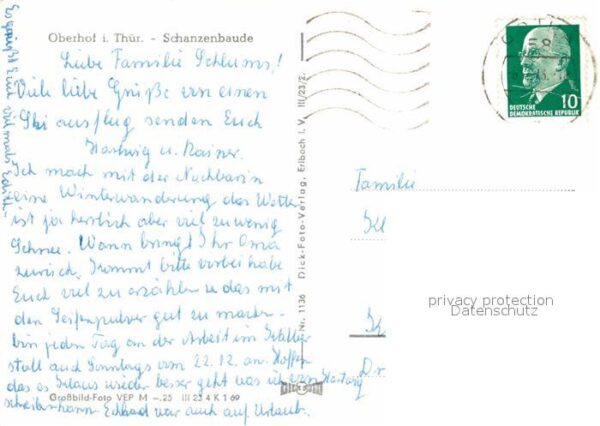 Oberhof i. Thür. - Schanzenbaude
Liebe Familie Schlums!
Viele liebe Grüße von einen
Skiausflug senden Euch
Hartwig u. Rainer.
Ich mach mit der Nachbarin
eine Winterwanderung das Wetter
ist ja herrlich aber viel zu wenig
Schnee. Wann bringt Ihr Oma
zurück, kommt bitte vorbei habe
Euch viel zu erzählen das mit
den Seifenpulver geht zu machen
bin jeden Tag an der Arbeit im
stall auch Sonntags vom 22.12. an. Hoffen
das es Klaus wieder besser geht was
schreiben kann war auch auf Urlaub.
Es grüßt Euch vielmals Edith
Großbild-Foto VEP M -.25 III 23 4 K 1 69
Nr. 1136 Dick-Foto-Verlag, Erlbach i. V. III/23/2.
DEUTSCHE
DEMOKRATISCHE REPUBLIK
10
Familie
privacy protection
Datenschutz